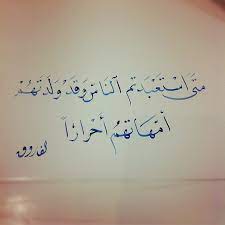 متى استعبدتم الناس وقد ولدتهم
أمهاتهم أحرارًا
الفاروق